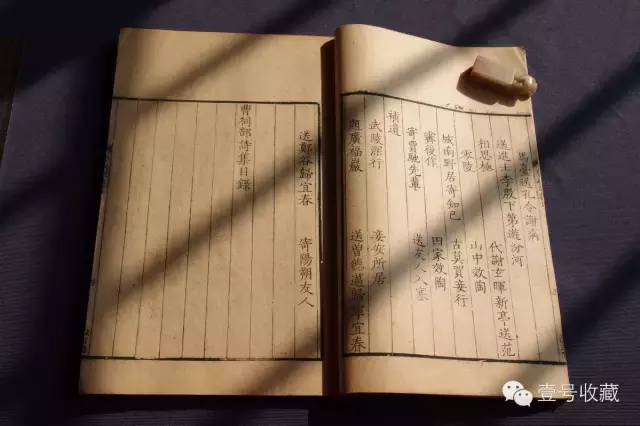 馬臺送孔令謝病
送進士李殷下第遊汾河
相思極 代謝玄暉新亭送范
零陵 山中效陶
城南野居寄知己 古莫買妾行
霽後作 田家效陶
寄賈馳先輩 送友人入塞
補遺
武陵深行 妾安所居
題廣福巖 送曾德邁歸寧宜春
送鄭谷歸宜春 寄陽朔友人
曹祠部詩集目錄
壹号收藏